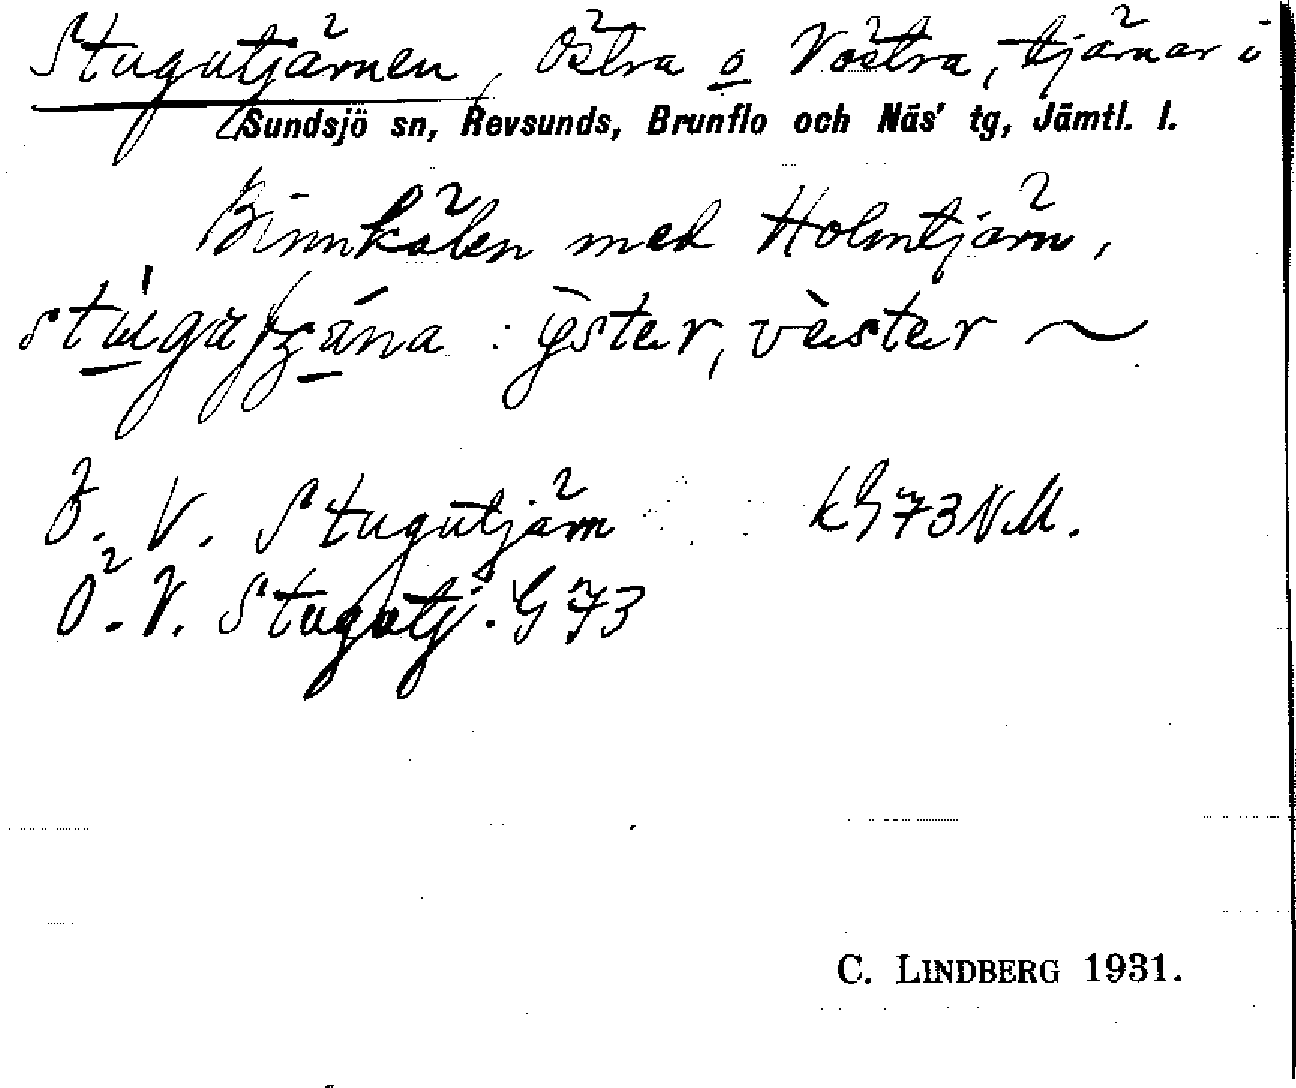 Stugutjärnen, Östra o Västra, tjärnar i
Sundsjö sn, Revsunds, Brunflo och Näs' tg, Jämtl. l.
Binnkälen med Holmtjärn,
: ỳster, vèster ~
Ö. V. Stugutjärn kG 73 N.M.
Ö. V. Stugutj. G 73
C. LINDBERG 1931.